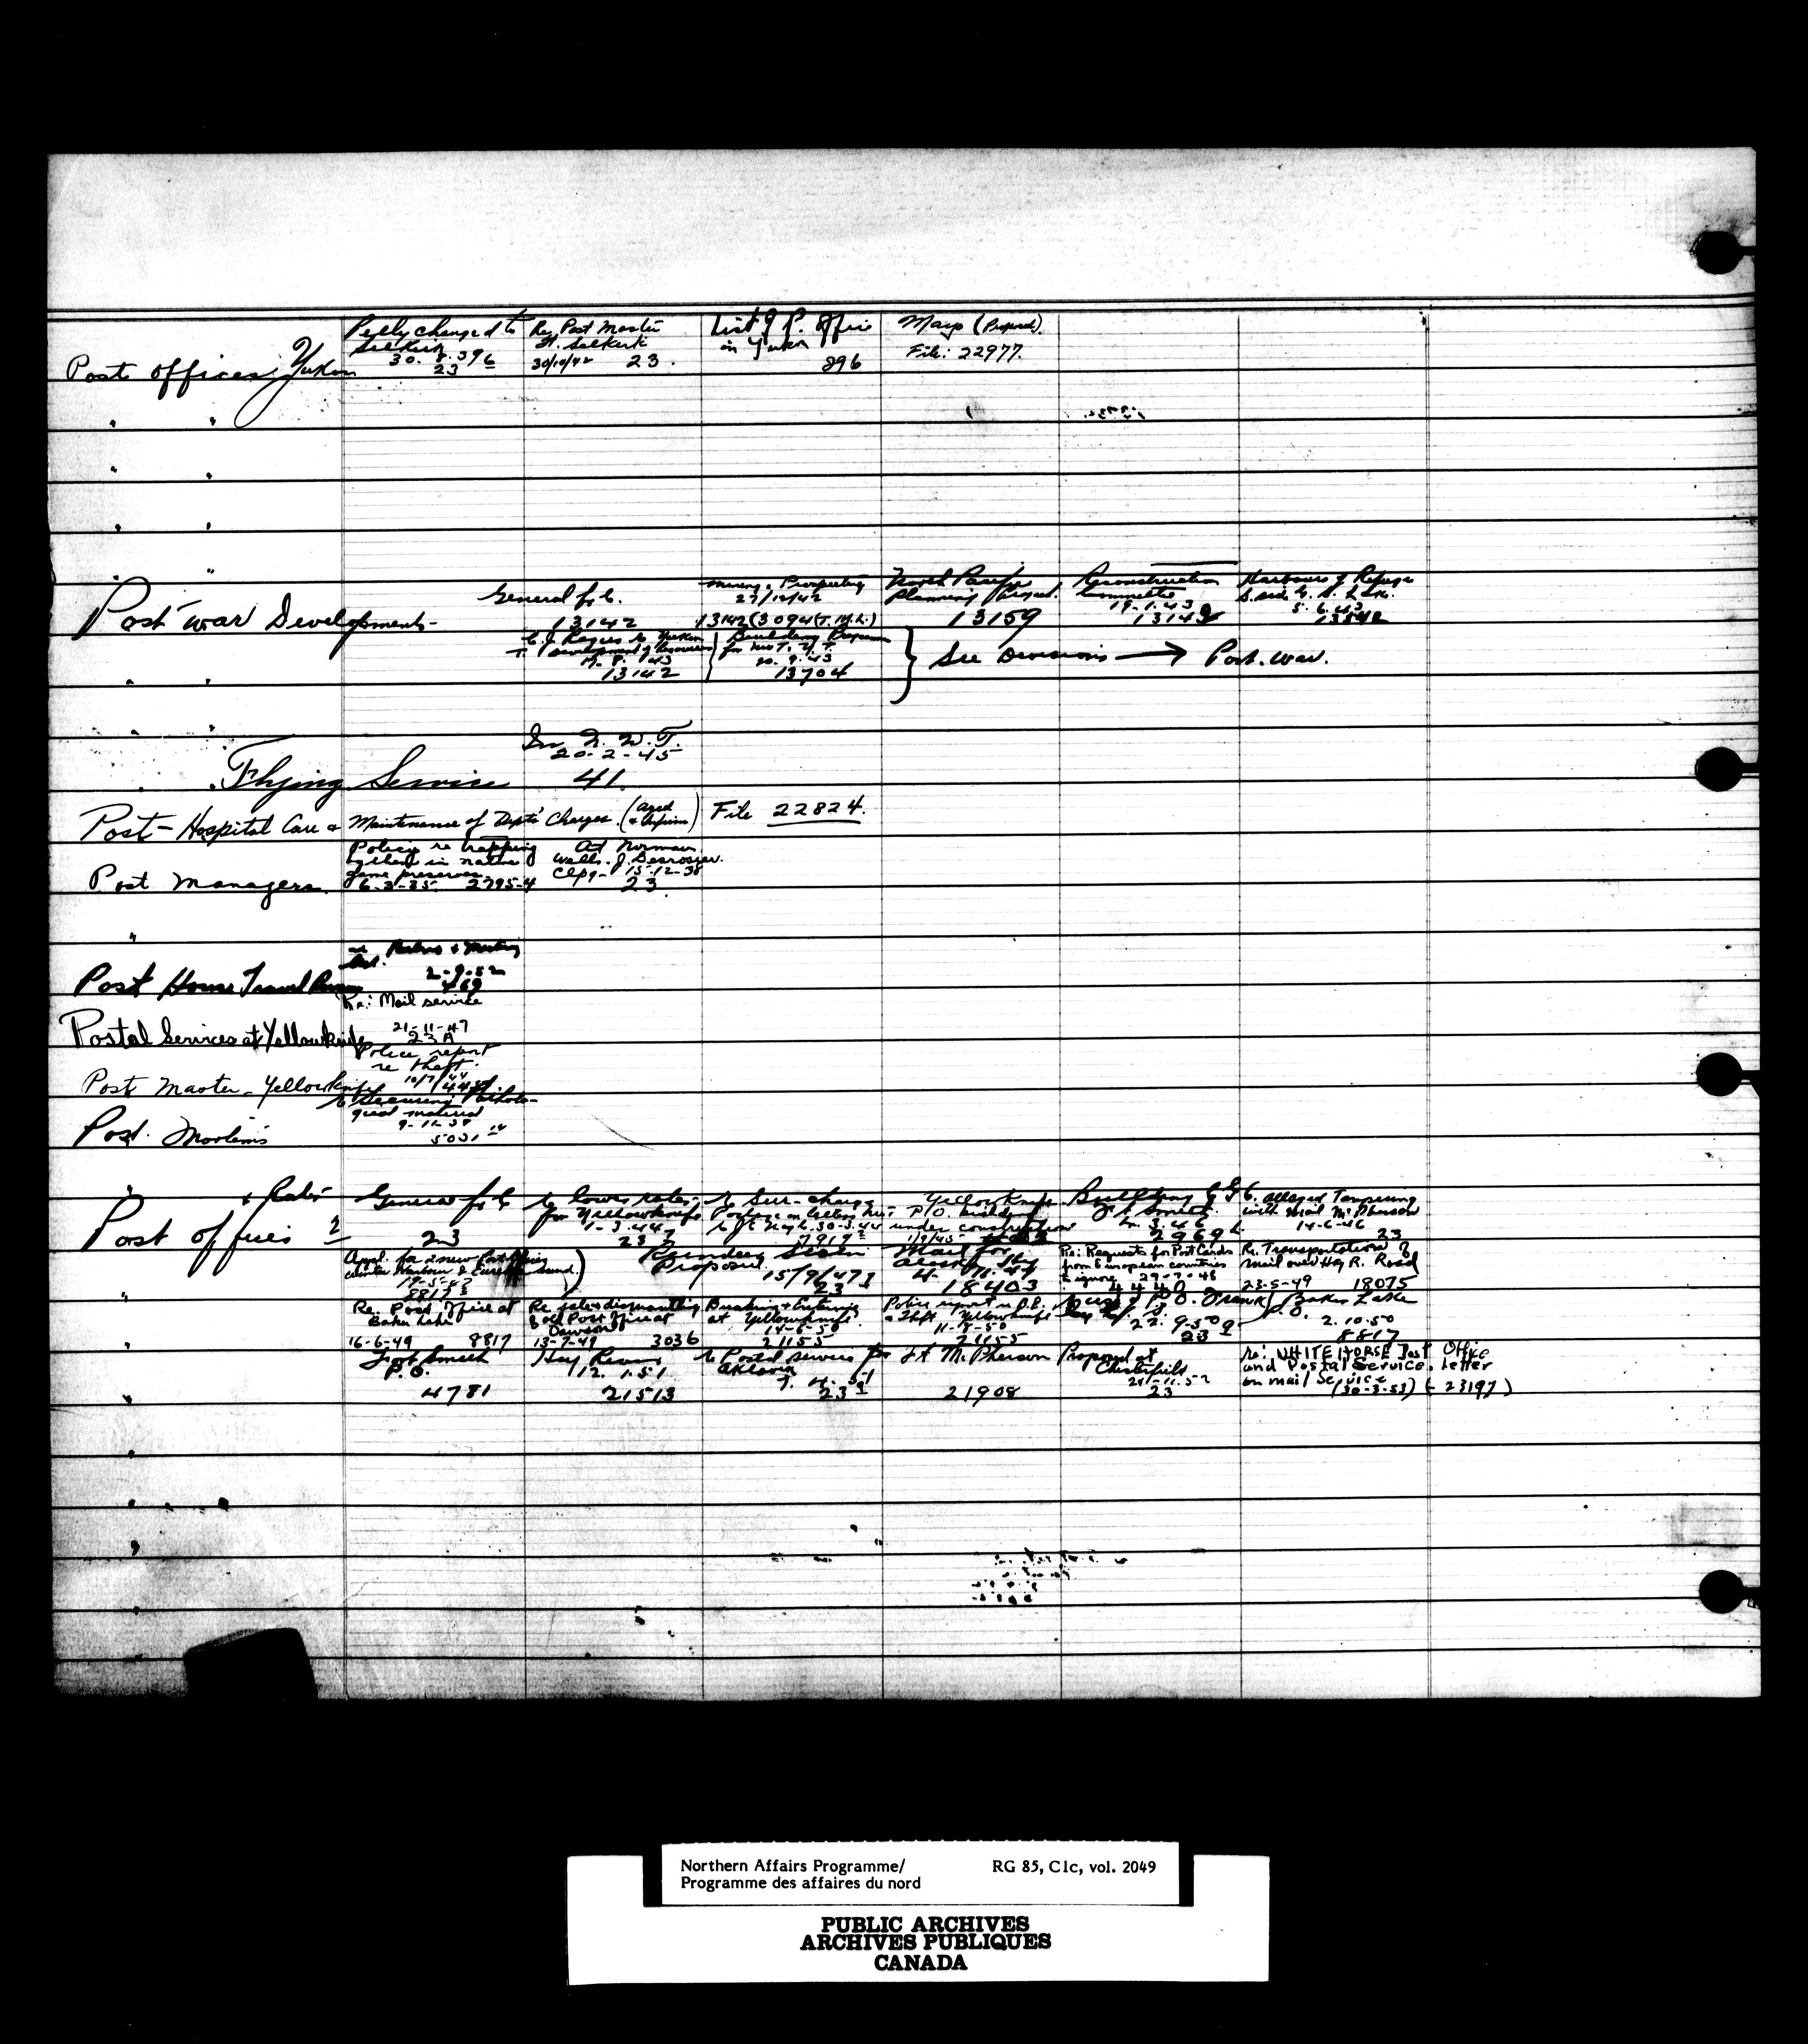 Post offices Yukon
Pelly changed to
Selkirk
30. 8. 396
23
Re Post Master
Ft. Selkirk
30/10/42 23.
List of P. Office
in Yukon
896
Mayo (Proposed)
File: 22977.
Post war Developments-
General file.
13142
Mining & Prospecting
27/12/42
13142 (3094 (T.M.L.)
North Pacific
Planning Project.
13159
Reconstruction
Committee
19-1-43
Harbours of Refuge
S. side G. S. Lake.
5. 6. 43
Yukon
Development of Resources
13142
Building Program
for N.W.T. Y.T.
20. 9. 43
13704
See Divisions → Post. War.
Flying Service
In N. W. T.
20-2-45
41.
Post-Hospital Care & Maintenance of Dept's Charges. (Aged & Infirm) File 22824.
Post Managers
Policy re trapping
by them in native
game preserves.
6-3-35 2795-4
At Norman
Wells. J. Desrosier.
15-12-38
23
Post House Travel
2-9-52
469
Postal Services at Yellowknife
Re: Mail service
21-11-47
23A
Post Master - Yellowknife
Police report
re theft.
10/7/44
Post. Mortems
re Securing Patholo-
gical material
9-11-39
5031
Post offices & Rates
General file
23
re lower rates
for Yellowknife
1-3-44
re Sur-charge
Postage on letters
30-3-44
Yellowknife
P/O. building
under construction
1/9/45
Building
Ft Smith.
2969
alleged Tampering
with mail McPherson
14-6-46
23
Appl. for 2 new Post Offices
8817
Reindeer Station
Proposed
15/9/47
23
Mail for
Alaska
18403
Re: Requests for Post Cards
from European countries
to ignore 29-7-48
4440
Re. Transportation of
mail over Hay R. Road
23-5-49 18075
Re. Post Office at
Baker Lake
16-6-49 8817
Re sale & dismantling
of old Post Office at
Dawson
13-7-49 3036
Breaking & Entering
at Yellowknife
14-5-50
21155
Police report
Theft Yellowknife
11-8-50
21155
22. 9-50
23
Baker Lake
P.O. 2. 10. 50
8817
Fort Smith
P.O.
4781
Hay River
12. 1. 51
21513
re Postal services for
Aklavik
23
Ft McPherson
21908
Proposed at
Chesterfield
24-11-52
23
re: WHITEHORSE Post Office
and Postal Service. Letter
on mail Service
(30-3-53) (23197)
Northern Affairs Programme/ RG 85, C1c, vol. 2049
Programme des affaires du nord
PUBLIC ARCHIVES
ARCHIVES PUBLIQUES
CANADA